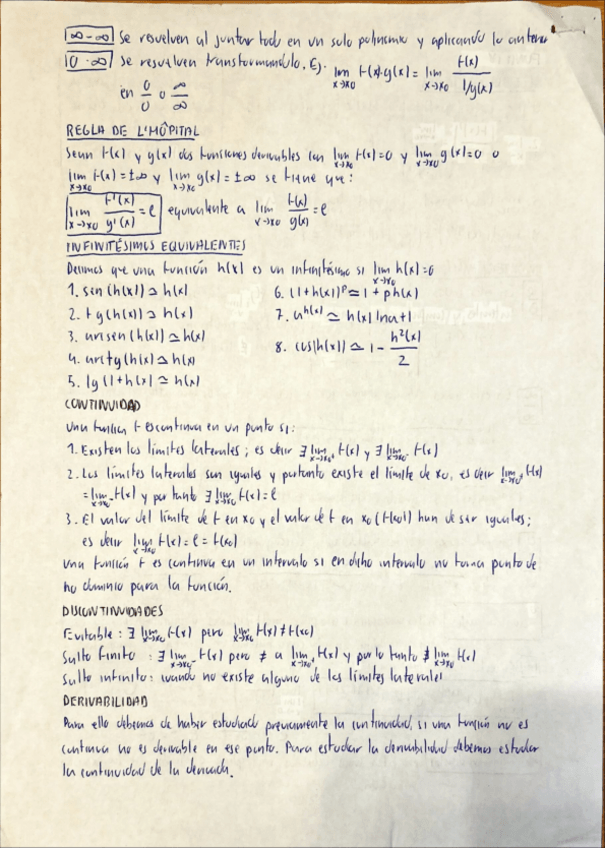 ∞-∞ Se resuelven al juntar todo en un solo polinomio y aplicando lo anterior
0·∞ Se resuelven transformandolo, Ej. lim x→x₀ f(x)·g(x) = lim x→x₀ f(x)/(1/g(x))
en 0/0 o ∞/∞
REGLA DE L'HÔPITAL
Sean f(x) y g(x) dos funciones derivables con lim x→x₀ f(x)=0 y lim x→x₀ g(x)=0 o
lim x→x₀ f(x)=±∞ y lim x→x₀ g(x)=±∞ se tiene que:
lim x→x₀ f'(x)/g'(x) = ℓ equivalente a lim x→x₀ f(x)/g(x) = ℓ
INFINITÉSIMOS EQUIVALENTES
Decimos que una función h(x) es un infinitésimo si lim x→x₀ h(x)=0
1. sen(h(x)) ≃ h(x) 6. (1+h(x))ᵖ ≃ 1 + p h(x)
2. tg(h(x)) ≃ h(x) 7. a^h(x) ≃ h(x) lna+1
3. arcsen(h(x)) ≃ h(x) 8. cos(h(x)) ≃ 1 - h²(x)/2
4. arctg(h(x)) ≃ h(x)
5. lg(1+h(x)) ≃ h(x)
CONTINUIDAD
Una función f es continua en un punto si:
1. Existen los límites laterales; es decir ∃ lim x→x₀⁺ f(x) y ∃ lim x→x₀⁻ f(x)
2. Los límites laterales son iguales y por tanto existe el límite de x₀, es decir lim x→x₀⁺ f(x)
= lim x→x₀⁻ f(x) y por tanto ∃ lim x→x₀ f(x)=ℓ
3. El valor del límite de f en x₀ y el valor de f en x₀ (f(x₀)) han de ser iguales;
es decir lim x→x₀ f(x) = ℓ = f(x₀)
Una función f es continua en un intervalo si en dicho intervalo no toma punto de
no dominio para la función.
DISCONTINUIDADES
Evitable: ∃ lim x→x₀ f(x) pero lim x→x₀ f(x) ≠ f(x₀)
Salto finito: ∃ lim x→x₀⁻ f(x) pero ≠ a lim x→x₀⁺ f(x) y por lo tanto ∄ lim x→x₀ f(x)
Salto infinito: cuando no existe alguno de los límites laterales
DERIVABILIDAD
Para ello debemos de haber estudiado previamente la continuidad, si una función no es
continua no es derivable en ese punto. Para estudiar la derivabilidad debemos estudiar
la continuidad de la derivada.